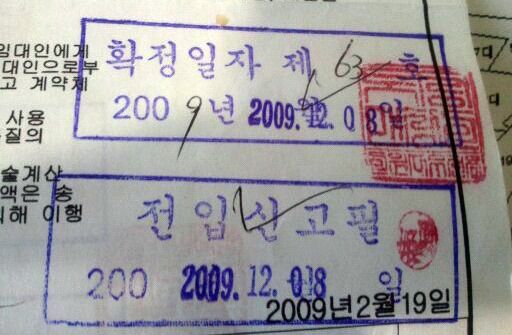 임대인에게
대인으로부
고 계약체
사용
확정일자 제 63 호
200 9 년 2009. 12. 0 8 일
술계산
액은 송
해 이행
전입신고필
200 2009. 12. 08 일
2009년2월19일